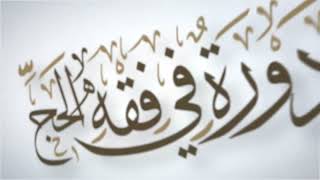 دَورَة في فِقْهِ الحَجِّ